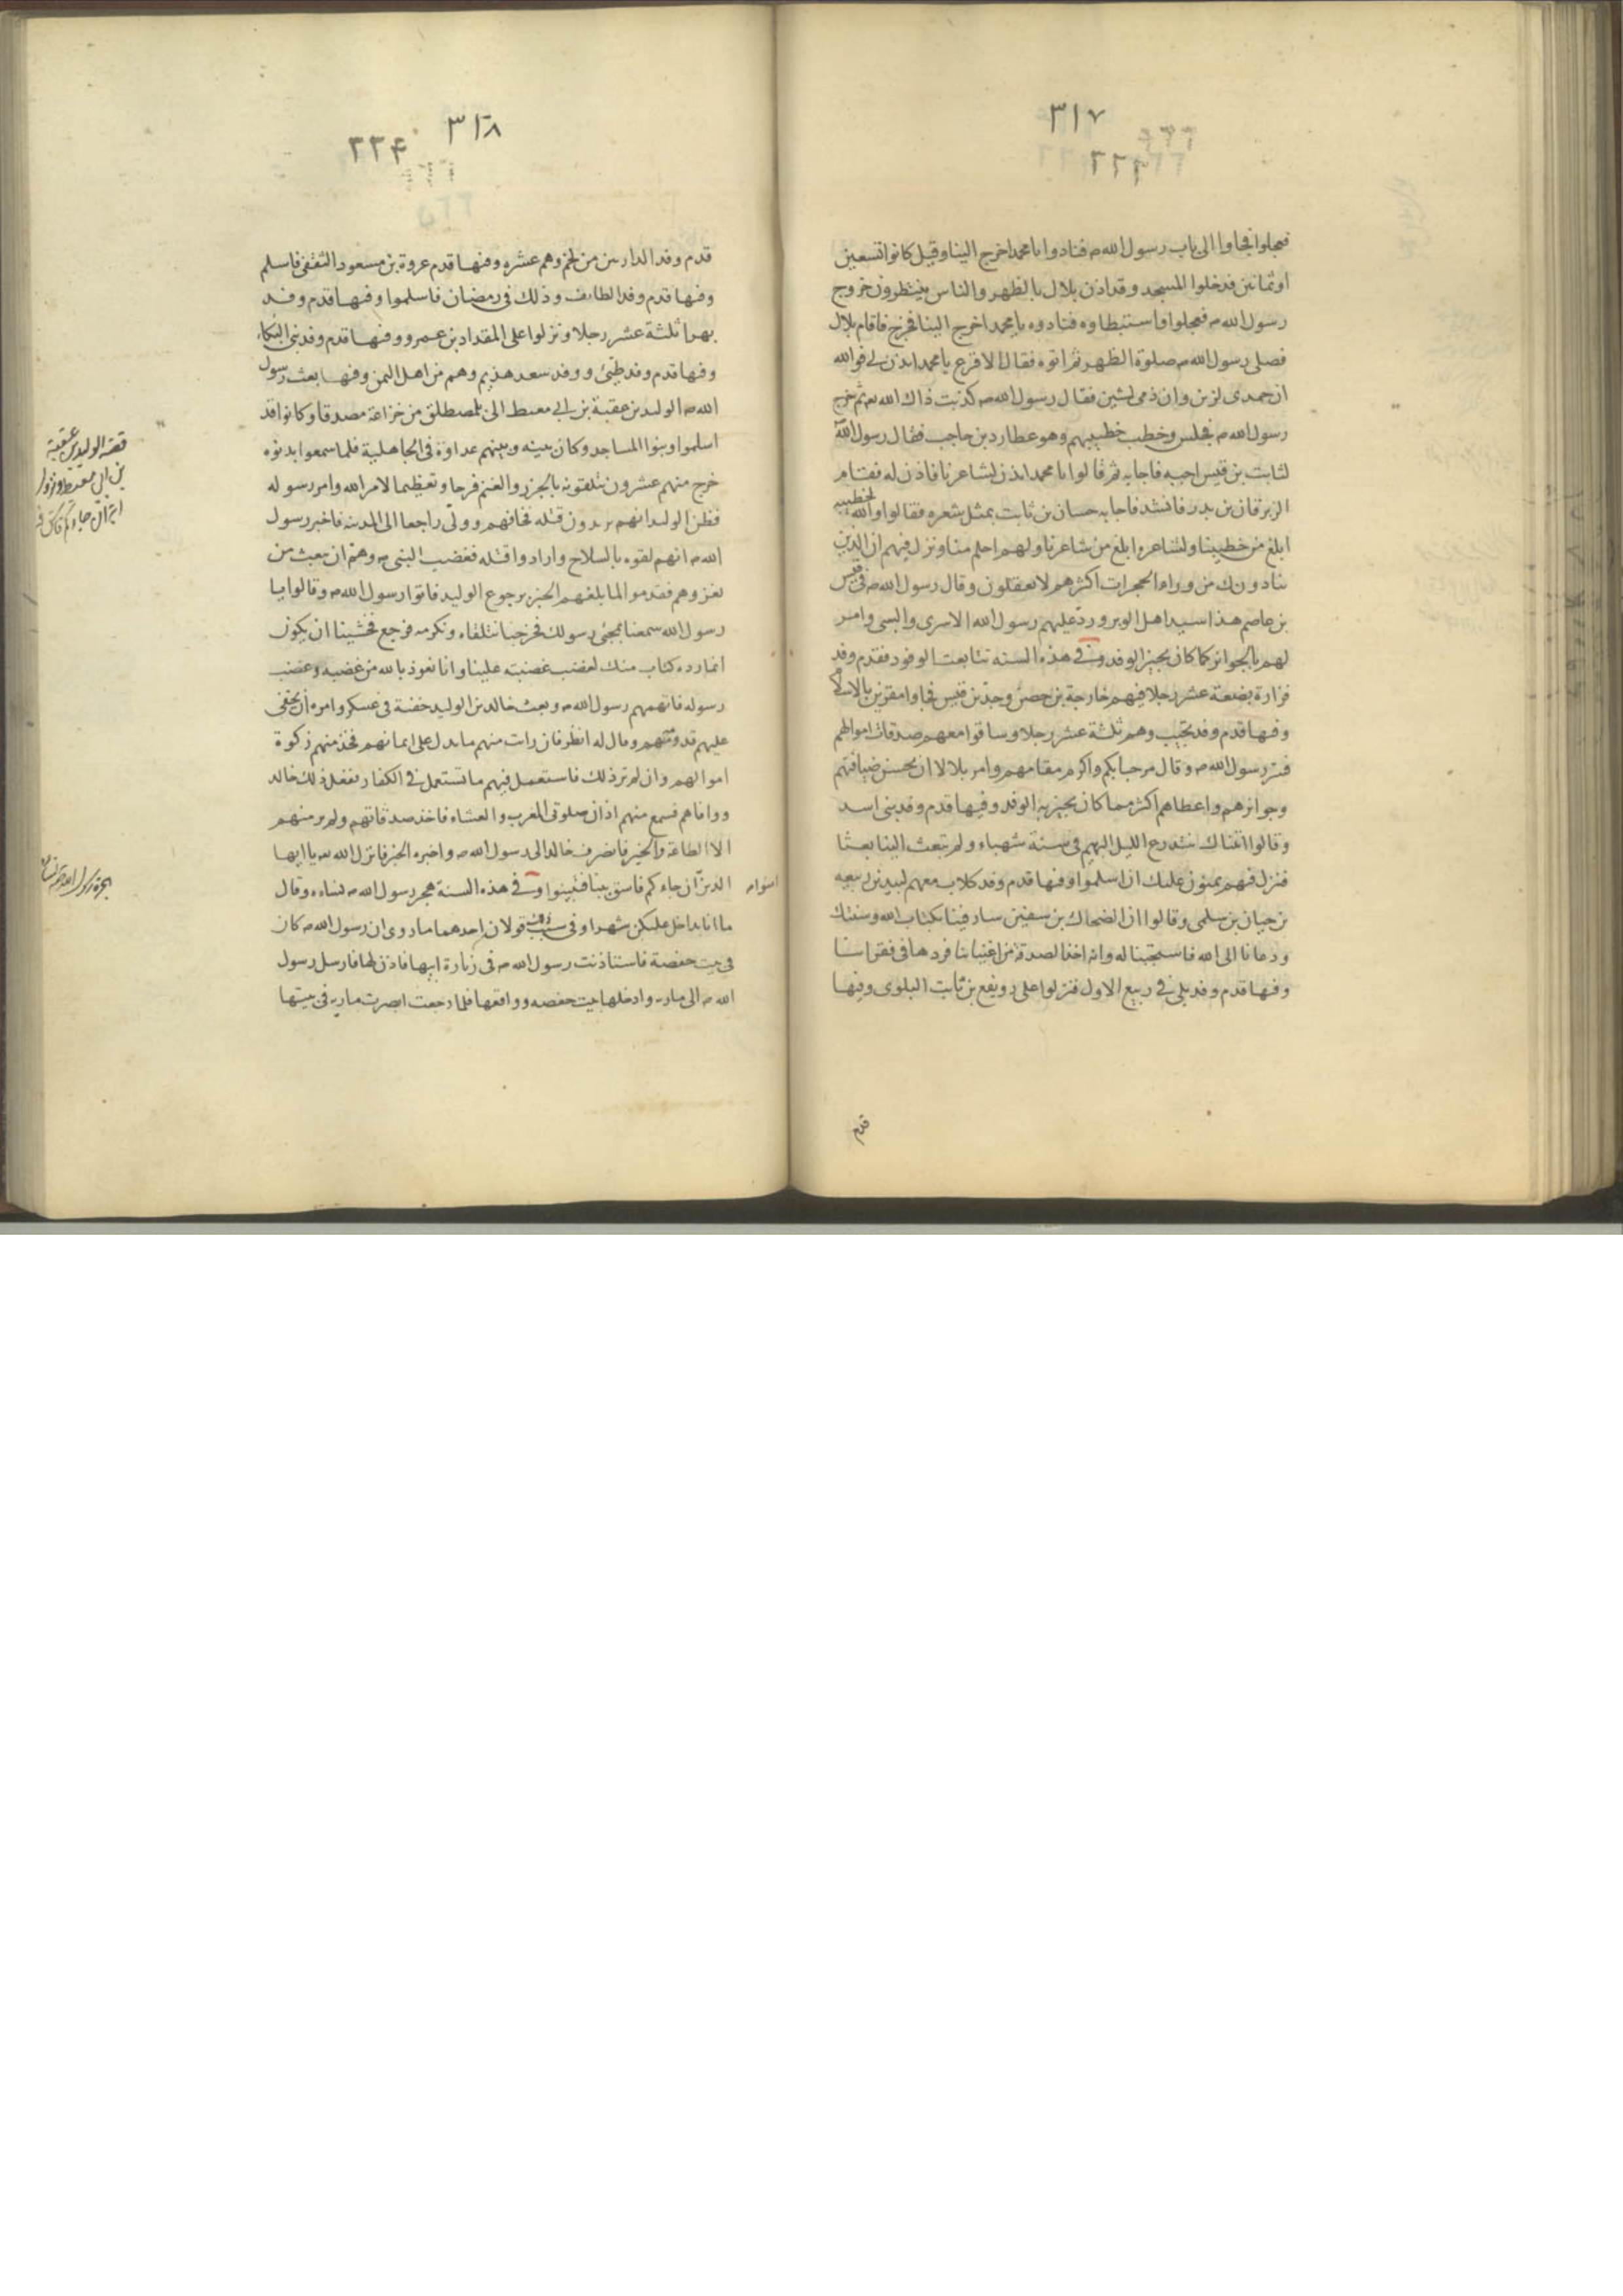 ٣١٧
٢٢٣
فعجلوا فجاوا الى باب رسول الله ص فنادوا يا محمد اخرج الينا وقيل كانوا تسعين
او ثمانين فدخلوا المسجد وقد اذن بلال بالظهر والناس ينتظرون خروج
رسول الله ص فعجلوا واستبطاوه فنادوه يا محمد اخرج الينا فخرج فاقام بلال
فصلى رسول الله ص صلوة الظهر ثم اتوه فقال الاقرع يا محمد ايذن لى فوالله
ان حمدى لزين وان ذمى لشين فقال رسول الله ص كذبت ذاك الله تع ثم خرج
رسول الله ص فجلس وخطب خطيبهم وهو عطارد بن حاجب فقال رسول الله ص
لثابت بن قيس اجبه فاجابه ثم قالوا يا محمد ايذن لشاعرنا فاذن له فقام
الزبرقان بن بدر فانشد فاجابه حسان بن ثابت بمثل شعره فقالوا والله لخطيبه
ابلغ من خطيبنا ولشاعره ابلغ من شاعرنا ولهم احلم منا ونزل فيهم ان الذين
ينادونك من وراء الحجرات اكثرهم لا يعقلون وقال رسول الله ص فى قيس
بن عاصم هذا سيد اهل الوبر ورد عليهم رسول الله الاسرى والسبى وامر
لهم بالجوائز كما كان يجيز الوفد وفى هذه السنه تتابعت الوفود فقدم وفد
فزارة بضعة عشر رجلا فيهم خارجة بن حصن وجد بن قيس فجاوا مقرين بالاسلام
وفيها قدم وفد تجيب وهم ثلثة عشر رجلا وساقوا معهم صدقات اموالهم
فسر رسول الله ص وقال مرحبا بكم واكرم مقامهم وامر بلالا ان يحسن ضيافتهم
وجوائزهم واعطاهم اكثر مما كان يجيز به الوفد وفيها قدم وفد بنى اسد
وقالوا اتيناك نتدرع الليل البهيم فى سنة شهباء ولم تبعث الينا بعثا
فنزل فيهم يمنون عليك ان اسلموا وفيها قدم وفد كلاب معهم لبيد بن ربيعه
بن حيان بن سلمى وقالوا ان الضحاك بن سفين سار فينا بكتاب الله وسنتك
ودعانا الى الله فاستجبنا له وانه اخذ الصدقة من اغنيائنا فردها فى فقرائنا
وفيها قدم وفد بلى فى ربيع الاول فنزلوا على رويفع بن ثابت البلوى وفيها
قدم
٣١٨
٢٢۴
قدم وفد الداريين من لخم وهم عشره وفيها قدم عروة بن مسعود الثقفى فاسلم
وفيها قدم وفد الطائف وذلك فى رمضان فاسلموا وفيها قدم وفد
بهرا ثلثة عشر رجلا ونزلوا على المقداد بن عمرو وفيها قدم وفد بنى البكاء
وفيها قدم وفد طيئ ووفد سعد هذيم وهم من اهل اليمن وفيها بعث رسول
الله ص الوليد بن عقبة بن ابي معيط الى بلمصطلق من خزاعة مصدقا وكانوا قد
اسلموا وبنوا المساجد وكان بينه وبينهم عداوة فى الجاهلية فلما سمعوا بدنوه
خرج منهم عشرون يتلقونه بالجزر والغنم فرحا وتعظيما لامر الله وامر رسوله
فظن الوليد انهم يريدون قتله فخافهم وولى راجعا الى المدينه فاخبر رسول
الله ص انهم لقوه بالسلاح وارادوا قتله فغضب النبى ص وهم ان يبعث من
يغزوهم فقدموا لما بلغهم الخبر برجوع الوليد فاتوا رسول الله ص وقالوا يا
رسول الله سمعنا بمجئى رسولك فخرجنا نتلقاه ونكرمه فرجع فخشينا ان يكون
انما رده كتاب منك لغضب غضبته علينا وانا نعوذ بالله من غضبه وغضب
رسوله فاتهمهم رسول الله ص وبعث خالد بن الوليد خفية فى عسكر وامره ان يخفى
عليهم قدومهم وقال له انظر فان رات منهم ما يدل على ايمانهم فخذ منهم زكوة
اموالهم وان لم تر ذلك فاستعمل فيهم ما تستعمل فى الكفار ففعل ذلك خالد
ووافاهم فسمع منهم اذان صلوتى المغرب والعشاء فاخذ صدقاتهم ولم ير منهم
الا الطاعة والخير فانصرف خالد الى رسول الله ص واخبره الخبر فانزل الله تع يا ايها
الذين ان جاءكم فاسق بنبا فتبينوا وفى هذه السنة هجر رسول الله ص نساءه وقال
امنوا ص
ما انا بداخل عليكن شهرا وفى سبب ذلك قولان احدهما ما روى ان رسول الله ص كان
فى بيت حفصة فاستاذنت رسول الله ص فى زيارة ابيها فاذن لها فارسل رسول
الله ص الى ماريه وادخلها بيت حفصه وواقعها فلما رجعت ابصرت ماريه فى بيتها
قصة الوليد بن عقبة
بن ابى معيط ونزول
ان جاءكم فاسق